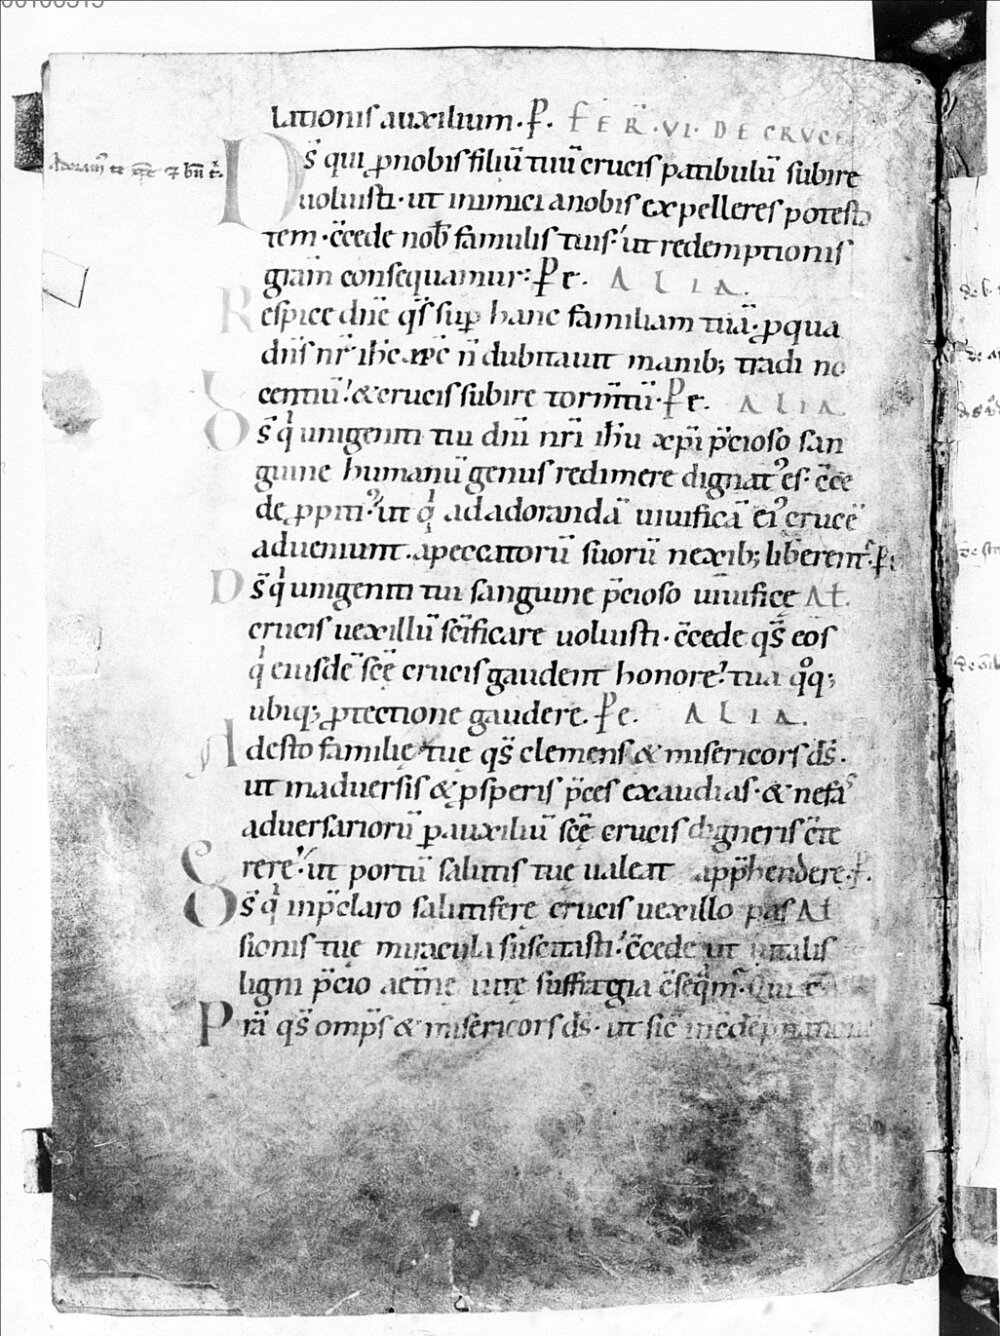 00100315
lationis auxiliū. P̄. FER̄. VI. DE CRVCE
Adoram᷒ te χp̄e ⁊ bn̄
D s̄ qui ꝓnobis filiū tuū crucis patibulū subire
uoluisti. ut inimici a nobis expelleres potesta
tem. c̄cede nob̄ famulis tuis. ut redemptionis
grām consequamur. P̄ e. ALIA.
Respice dn̄e qs̄ sup̄ hanc familiam tuā. ꝓ qua
dn̄s nr̄ ih̄c xp̄c n̄ dubitauit manib; tradi no
centiū. & crucis subire torm̄tū. P̄ e. ALIA
D s̄ qͥ unigeniti tui dn̄i nr̄i ih̄u xp̄i p̄cioso san
guine humanū genus redimere dignat᷒ es. c̄ce
de ꝓpiti᷒. ut qͥ ad adorandā uiuificā ei᷒ crucē
adueniunt. a peccatorū suorū nexib; liberent᷑. P̄
D s̄ qͥ unigeniti tui sanguine p̄cioso uiuificę Al̄.
crucis uexillū sc̄ificare uoluisti. c̄cede qs̄ eos
qͥ eiusdē sc̄ę crucis gaudent honore. tua qͦq;
ubiq; ꝓtectione gaudere. P̄ e. ALIA.
Adesto familię tuę qs̄ clemens & misericors ds̄.
ut in aduersis & ꝓsperis p̄ces exaudias. & nefas
aduersariorū p̱ auxiliū sc̄ę crucis digneris c̄te
rere. ut portū salutis tuę ualeat app̄hendere. P̄.
D s̄ qͥ in p̄claro salutiferę crucis uexillo pas Al̄
sionis tuę miracula suscitasti. c̄cede ut uitalis
ligni p̄cio aet̄nę uitę suffragia c̄seqͣm᷑. Qui
Prā qs̄ omp̄s & misericors ds̄. ut sic